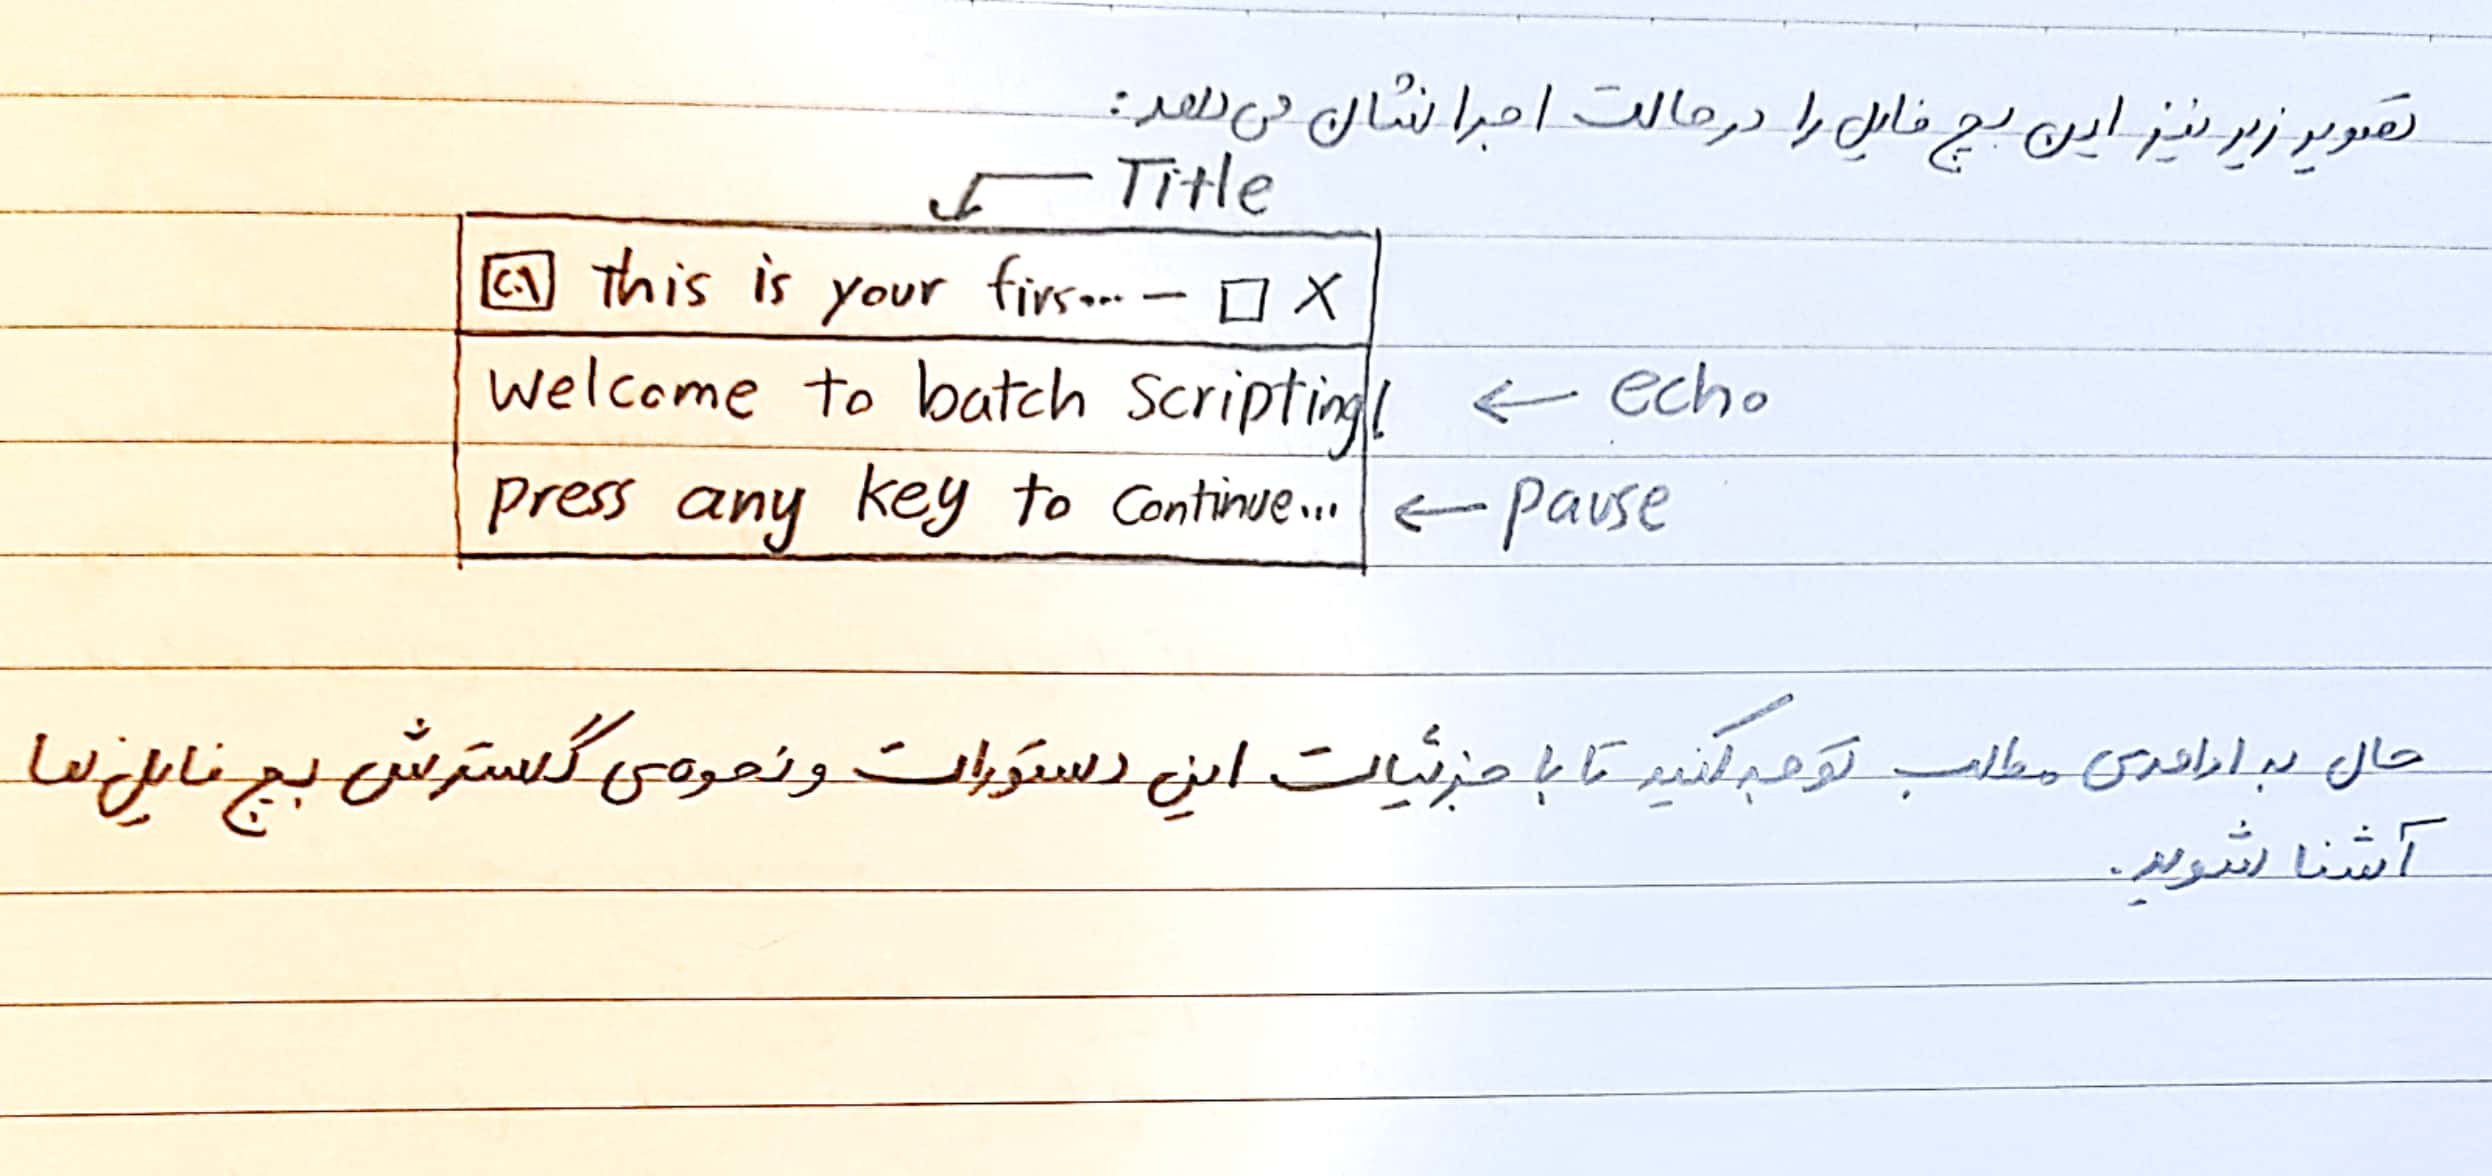 تصویر زیر نیز این بچ فایل را در حالت اجرا نشان می دهد:
Title
C:\ This is your firs... - □ X
Welcome to batch Scripting! ← echo
press any key to Continue... ← pause
حال به ادامه‌ی مطالب توجه کنید تا با جزئیات این دستورات و نحوه‌ی گسترش بچ فایل ها
آشنا شوید.